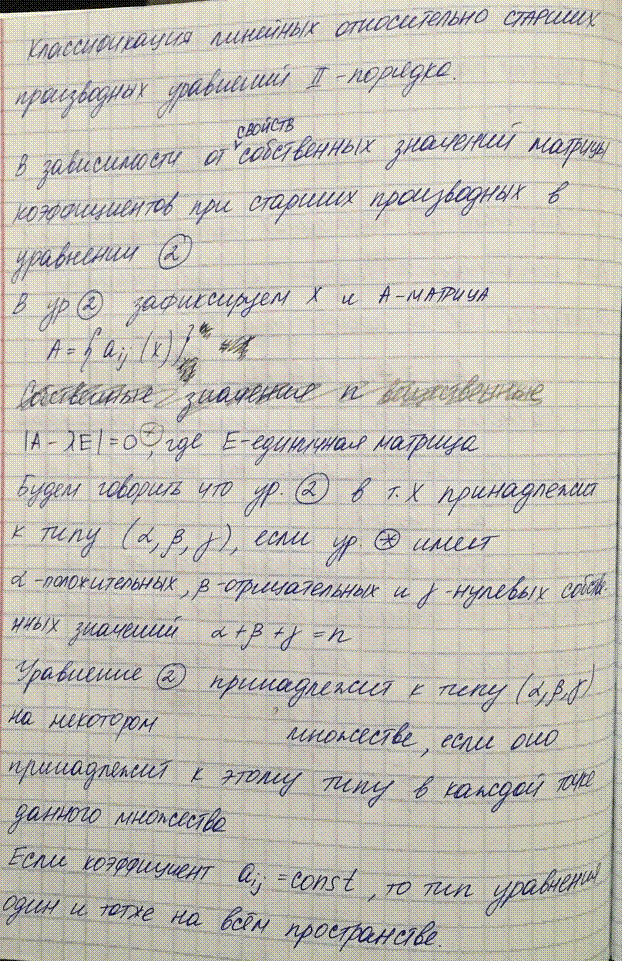 Классификация линейных относительно старших
производных уравнений II-порядка.
свойств
В зависимости от собственных значений матрицы
коэффициентов при старших производных в
уравнении ②
В ур ② зафиксируем X и A-матрица
A = { aij (x)}
Собственные значение n вещественные
|A - λE| = 0 *, где E-единичная матрица
Будем говорить что ур. ② в т. X принадлежит
к типу (α, β, γ), если ур. * имеет
α-положительных, β-отрицательных и γ-нулевых собстве-
нных значений α+β+γ=n
Уравнение ② принадлежит к типу (α,β,γ)
на некотором множестве, если оно
принадлежит к этому типу в каждой точке
данного множества
Если коэффициент aij = const, то тип уравнения
один и тотже на всём пространстве.